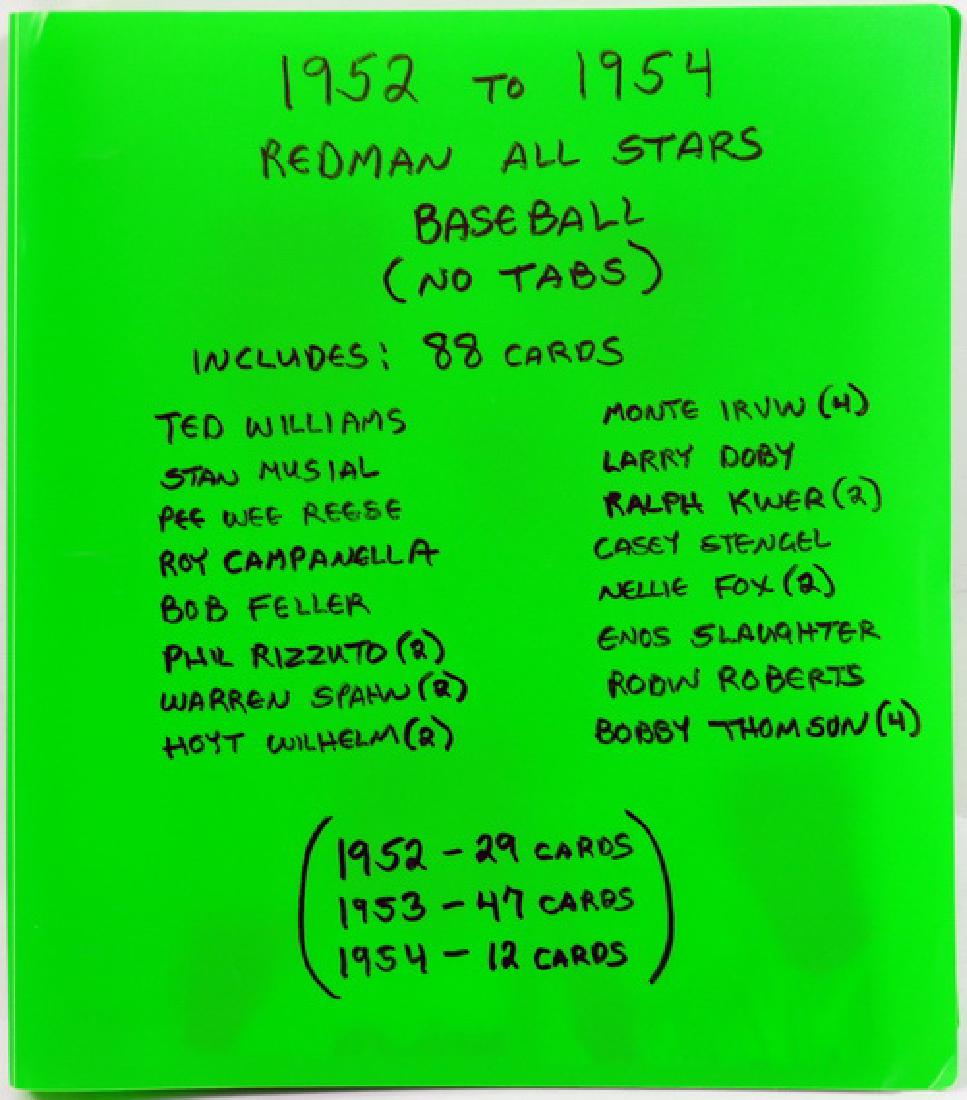 1952 TO 1954
REDMAN ALL STARS
BASEBALL
(NO TABS)
INCLUDES: 88 CARDS
TED WILLIAMS
STAN MUSIAL
PEE WEE REESE
ROY CAMPANELLA
BOB FELLER
PHIL RIZZUTO (2)
WARREN SPAHN (2)
HOYT WILHELM (2)
MONTE IRVIN (4)
LARRY DOBY
RALPH KINER (2)
CASEY STENGEL
NELLIE FOX (2)
ENOS SLAUGHTER
ROBIN ROBERTS
BOBBY THOMSON (4)
(1952 - 29 CARDS
1953 - 47 CARDS
1954 - 12 CARDS)